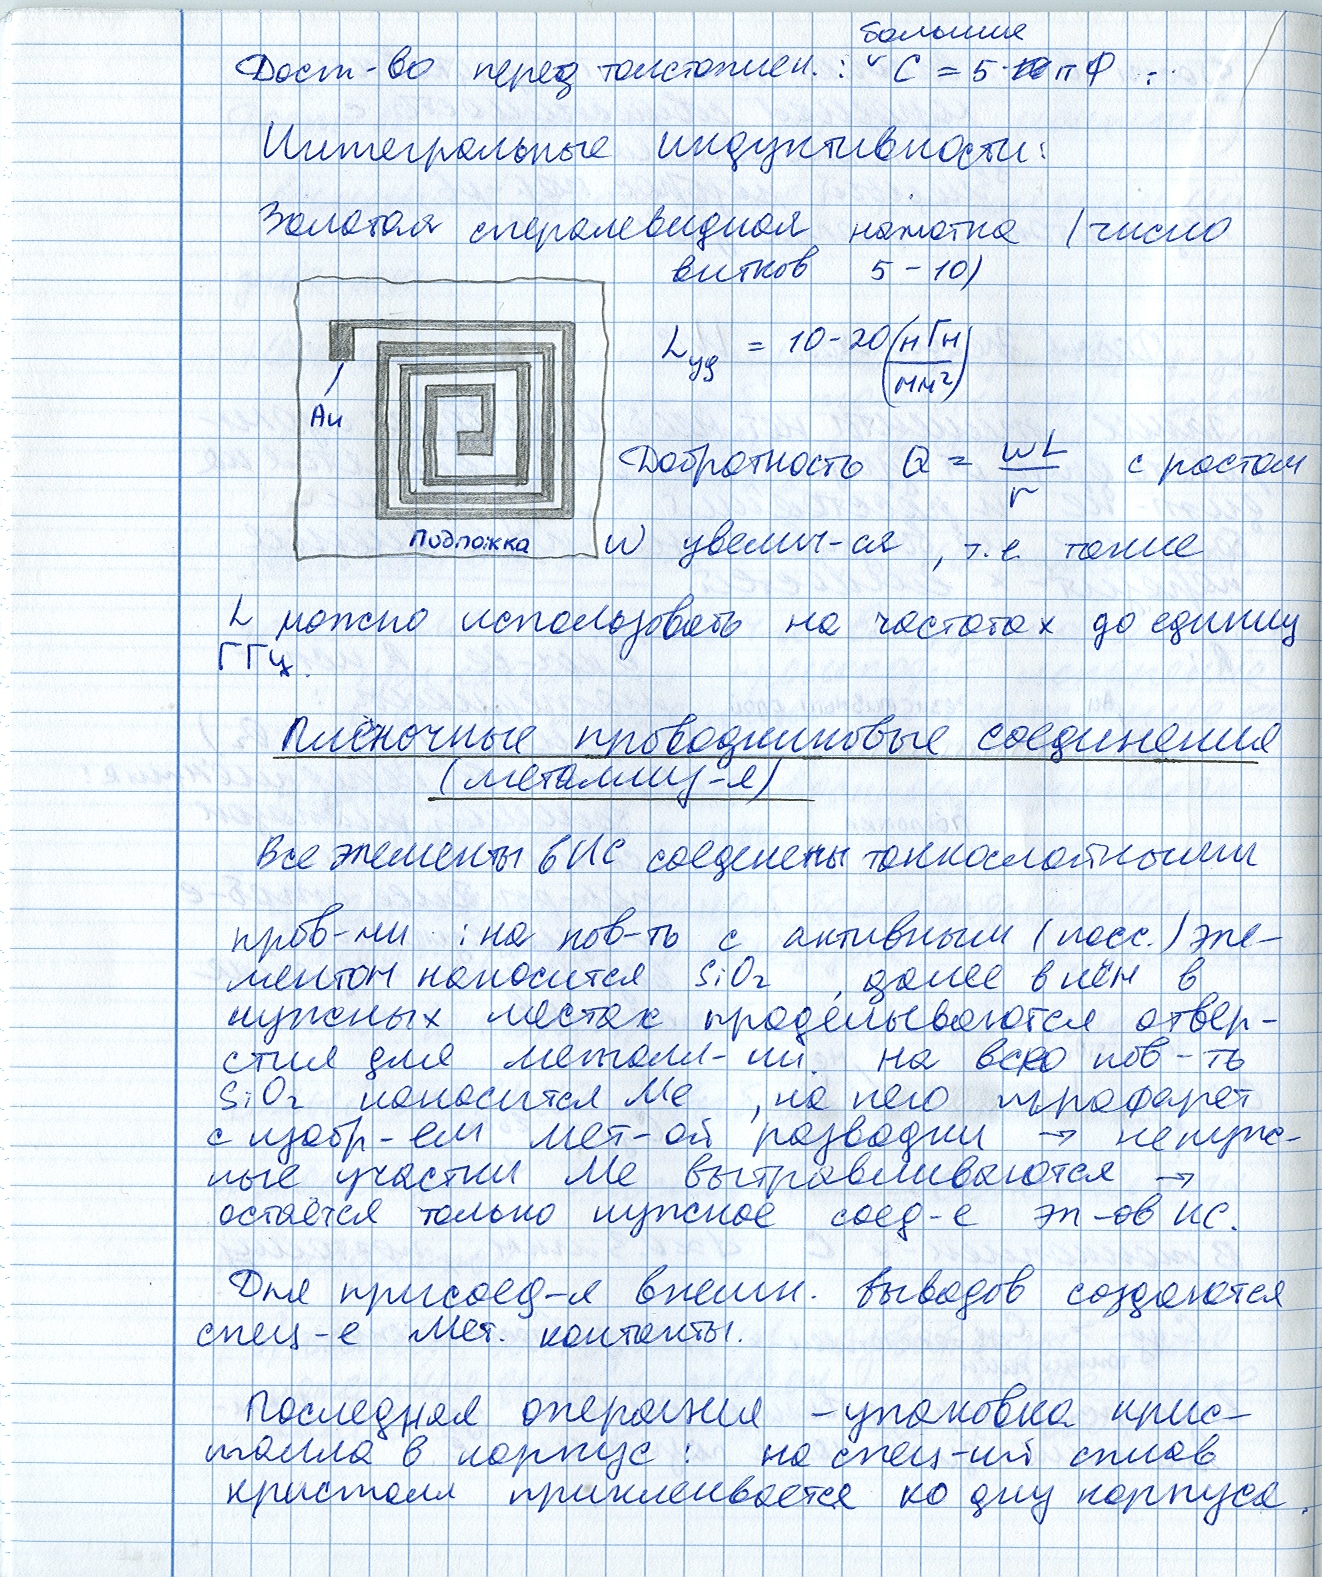 большие
Дост-во перед толстоплен.: ᵛ C = 5 пФ
Интегральные индуктивности:
Золотая спералевидная намотка (число
витков 5-10)
Lуд = 10-20 (нГн/мм²)
Au
Добротность Q = ωL/r с ростом
Подложка
ω увелич-ся, т.е. такие
L можно использовать на частотах до единиц
ГГц.
Плёночные проводниковые соединения
(металлиз-я)
Все элементы в ИС соеденены тонкослойными
пров-ми: на пов-ть с активным (пасс.) эле-
ментом наносится SiO₂, далее в нём в
нужных местах проделываются отвер-
стия для металл-ии. на всю пов-ть
SiO₂ наносится Ме, на него трафарет
с изобр-ем мет-ой разводки → ненуж-
ные участки Ме вытравливаются →
остаётся только нужное соед-е эл-ов ИС.
Для присоед-я внешн. выводов создаются
спец-е мет. контакты.
Последняя операция - упаковка крис-
талла в корпус: на спец-ий сплав
кристалл приклеивается ко дну корпуса.